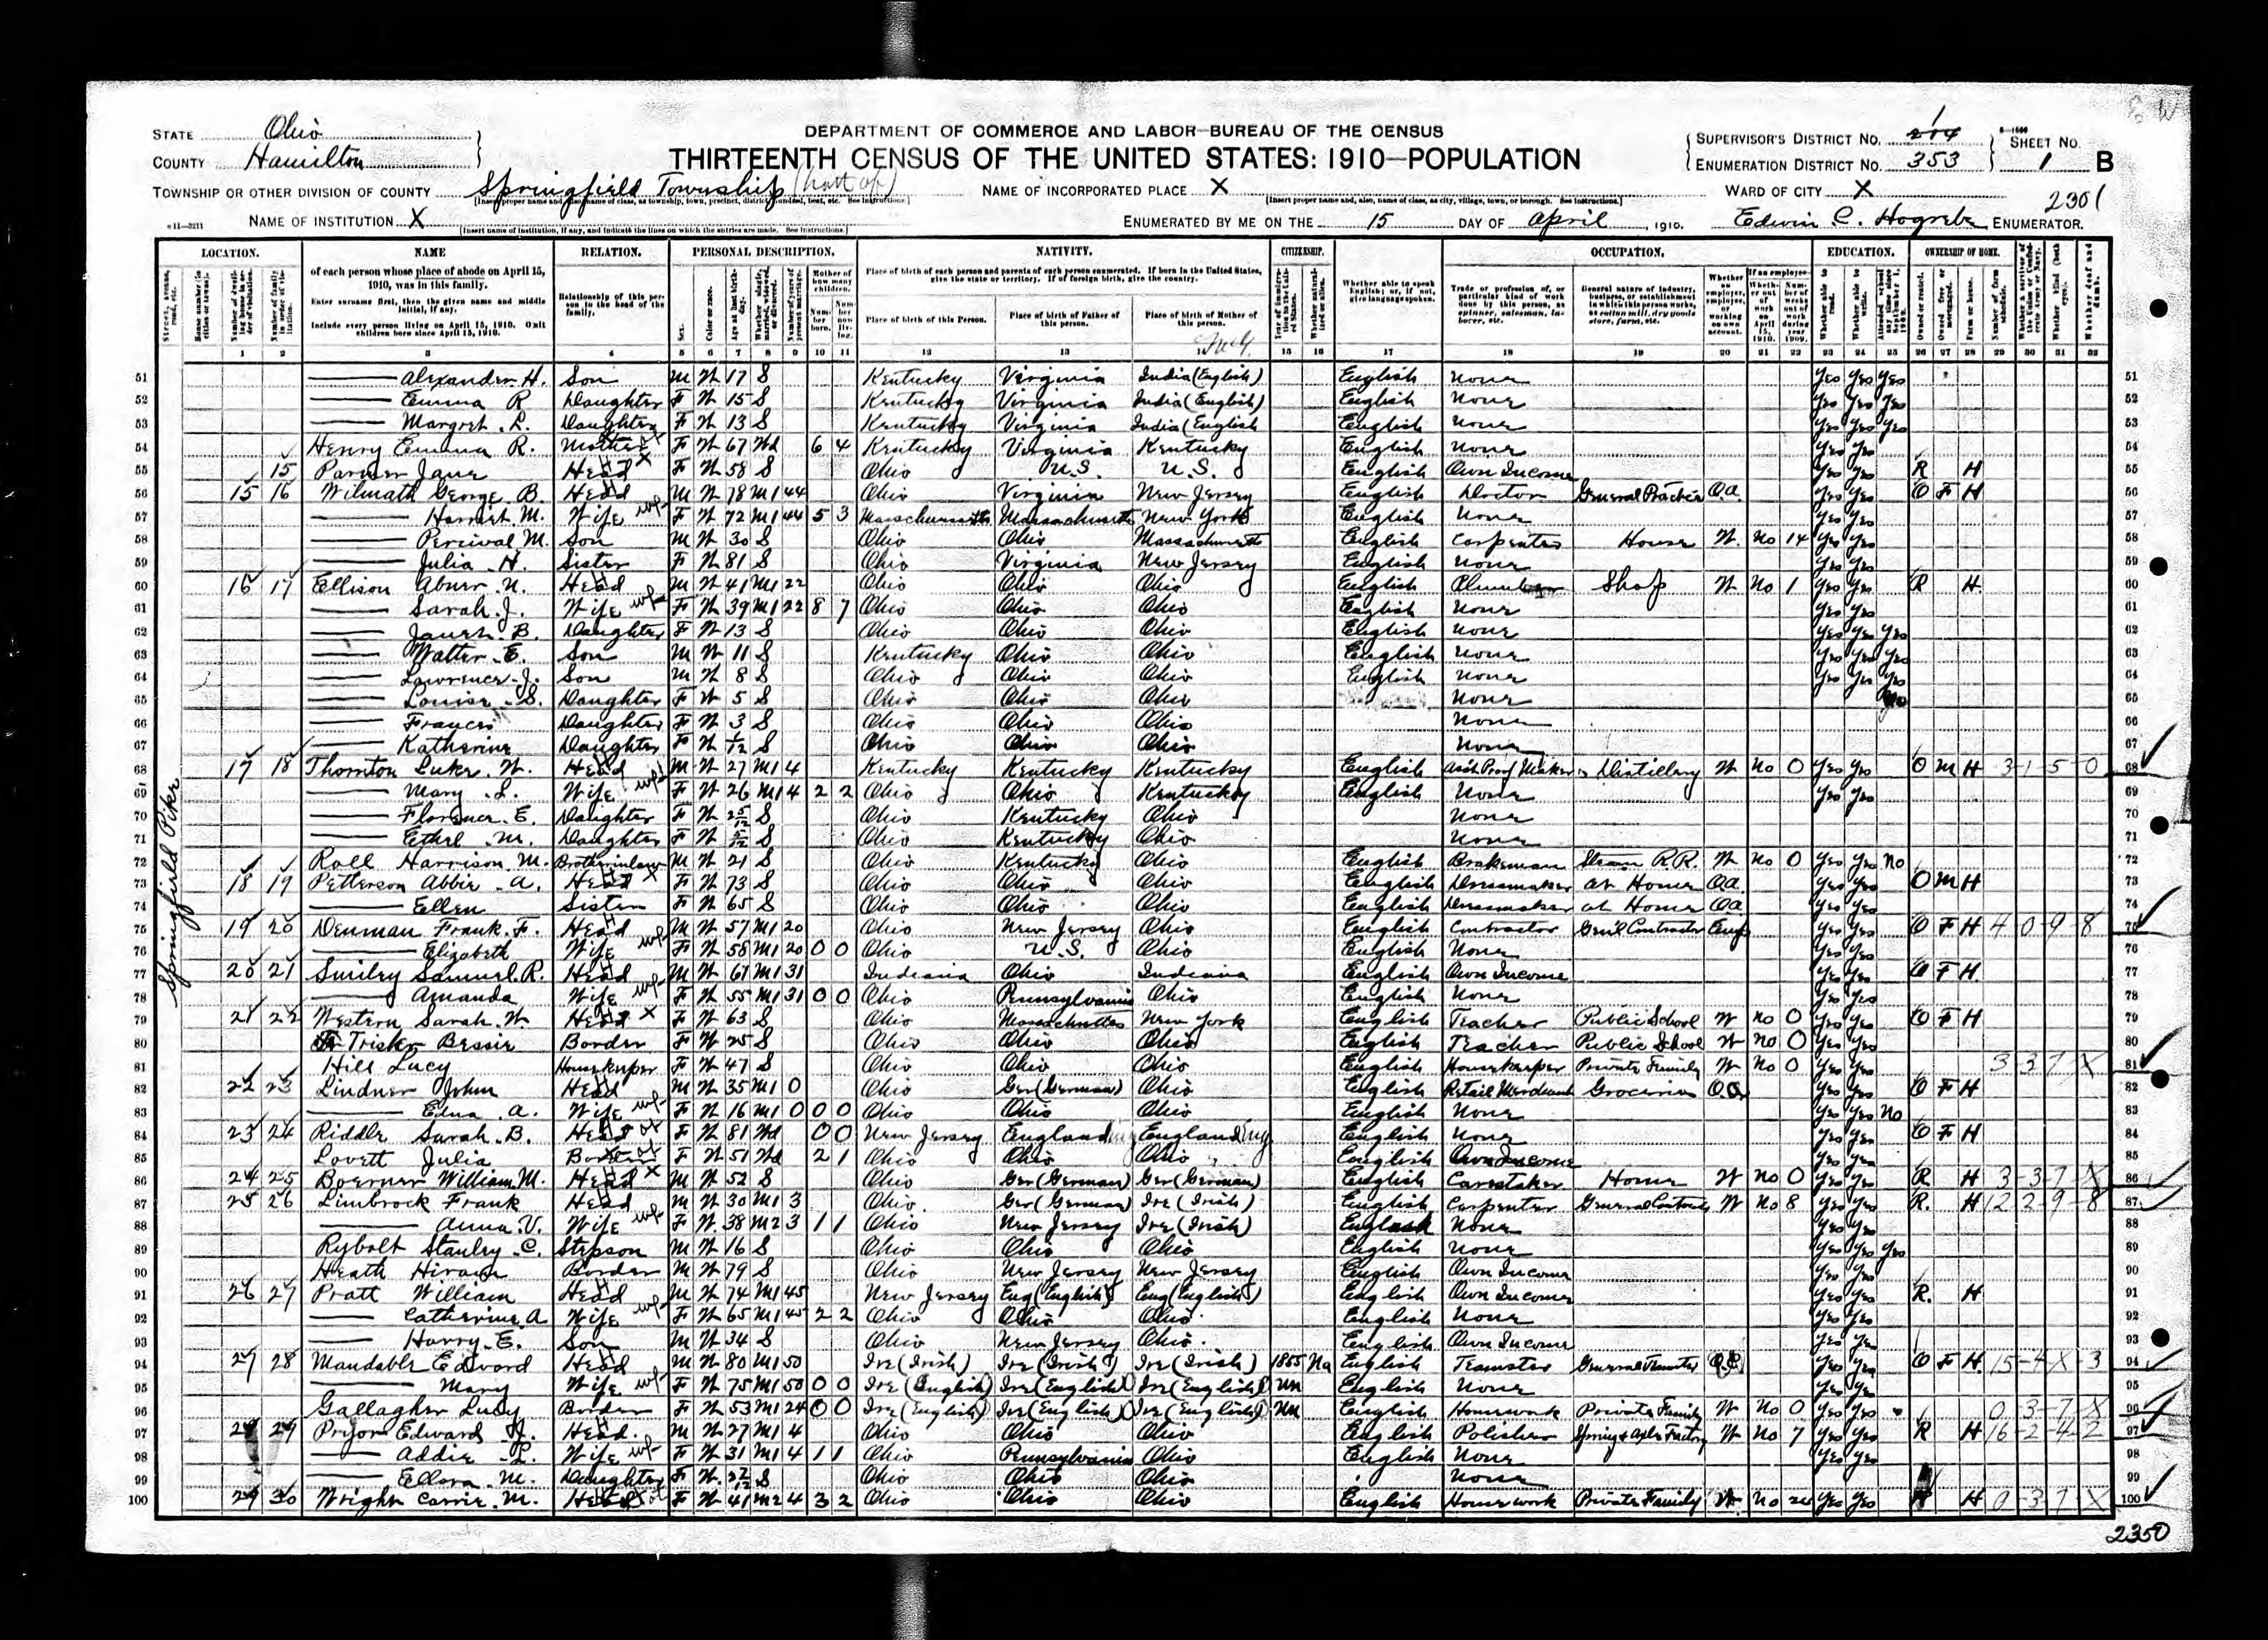 DEPARTMENT OF COMMERCE AND LABOR—BUREAU OF THE CENSUS
THIRTEENTH CENSUS OF THE UNITED STATES: 1910—POPULATION
STATE Ohio
COUNTY Hamilton
TOWNSHIP OR OTHER DIVISION OF COUNTY Springfield Township
NAME OF INSTITUTION X
NAME OF INCORPORATED PLACE X
ENUMERATED BY ME ON THE 15 DAY OF April, 1910.
SUPERVISOR'S DISTRICT No. 1
ENUMERATION DISTRICT No. 353
SHEET No. 1 B
WARD OF CITY X
2301
Edwin C. Hogrebe ENUMERATOR.
LOCATION. NAME RELATION. PERSONAL DESCRIPTION. NATIVITY. CITIZENSHIP. OCCUPATION. EDUCATION. OWNERSHIP OF HOME.
of each person whose place of abode on April 15, 1910, was in this family.
Enter surname first, then the given name and middle initial, if any.
Include every person living on April 15, 1910. Omit children born since April 15, 1910.
Relationship of this person to the head of the family.
Place of birth of each person and parents of each person enumerated. If born in the United States, give the state or territory. If of foreign birth, give the country.
Place of birth of this Person. Place of birth of Father of this person. Place of birth of Mother of this person.
Whether able to speak English; or, if not, give language spoken.
1 2 3 4 5 6 7 8 9 10 11 12 13 14 15 16 17 18 19 20 21 22 23 24 25 26 27 28 29 30 31 32
Springfield Pike
51 — Alexander H. Son M W 17 S Kentucky Virginia India (English) English None Yes Yes Yes
52 — Emma R Daughter F W 15 S Kentucky Virginia India (English) English None Yes Yes Yes
53 — Margret L. Daughter F W 13 S Kentucky Virginia India (English English None Yes Yes Yes
54 Henry Emma R. Mother F W 67 Wd 6 4 Kentucky Virginia Kentucky English None Yes Yes
55 15 Jane Head F W 58 S Ohio U.S. U.S. English Own Income Yes Yes R H
56 15 16 Wilmath George B. Head M W 78 M1 44 Ohio Virginia New Jersey English Doctor General Practice O.A. Yes Yes O F H
57 — Harriet M. Wife F W 72 M1 44 5 3 Massachusetts Massachusetts New York English None Yes Yes
58 — Percival M. Son M W 30 S Ohio Ohio Massachusetts English Carpenter House W. No 14 Yes Yes
59 — Julia H. Sister F W 81 S Ohio Virginia New Jersey English None Yes Yes
60 16 17 Ellison Abner N. Head M W 41 M1 22 Ohio Ohio Ohio English Plumber Shop W No 1 Yes Yes R H.
61 — Sarah J. Wife F W 39 M1 22 8 7 Ohio Ohio Ohio English None Yes Yes
62 — B. Daughter F W 13 S Ohio Ohio Ohio English None Yes Yes Yes
63 — Walter E. Son M W 11 S Kentucky Ohio Ohio English None Yes Yes Yes
64 — Lawrence J. Son M W 8 S Ohio Ohio Ohio English None Yes Yes Yes
65 — Louise S. Daughter F W 5 S Ohio Ohio Ohio None No
66 — Frances Daughter F W 3 S Ohio Ohio Ohio None
67 — Katherine Daughter F W 1/12 S Ohio Ohio Ohio None
68 17 18 Thornton Luke W. Head M W 27 M1 4 Kentucky Kentucky Kentucky English Distillery W No 0 Yes Yes O M H 3-1-5-0
69 — Mary L. Wife F W 26 M1 4 2 2 Ohio Ohio Kentucky English None Yes Yes
70 — Florence E. Daughter F W 2 5/12 S Ohio Kentucky Ohio None
71 — Ethel M. Daughter F W 5/12 S Ohio Kentucky Ohio None
72 Roll Harrison M. Brotherinlaw M W 21 S Ohio Kentucky Ohio English Brakeman Steam R.R. W No 0 Yes Yes No
73 18 19 Petterson Abbie A. Head F W 73 S Ohio Ohio Ohio English Dressmaker at Home OA. Yes Yes O M H
74 — Ellen Sister F W 65 S Ohio Ohio Ohio English Dressmaker at Home OA Yes Yes
75 19 20 Denman Frank F. Head M W 57 M1 20 Ohio New Jersey Ohio English Contractor Gen'l Contractor Emp Yes Yes O F H 4-0-9-8
76 — Elizabeth Wife F W 58 M1 20 0 0 Ohio U.S. Ohio English None Yes Yes
77 20 21 Smiley Samuel R. Head M W 67 M1 31 Indiana Ohio Indiana English Own Income Yes Yes O F H
78 — Amanda Wife F W 55 M1 31 0 0 Ohio Pennsylvania Ohio English None Yes Yes
79 21 22 Western Sarah W. Head F W 63 S Ohio Massachusettes New York English Teacher Public School W No 0 Yes Yes O F H
80 Trisler Bessie Border F W 25 S Ohio Ohio Ohio English Teacher Public School W No 0 Yes Yes
81 Hill Lucy Housekeeper F W 47 S Ohio Ohio Ohio English Housekeeper Private Family W No 0 Yes Yes 3 3 7 X
82 22 23 Lindner John Head M W 35 M1 0 Ohio Ger (German) Ohio English Retail Merchant Groceries OA Yes Yes O F H
83 — Edna A. Wife F W 16 M1 0 0 0 Ohio Ohio Ohio English None Yes Yes No
84 23 24 Riddle Sarah B. Head F W 81 Wd 0 0 New Jersey England England English None Yes Yes O F H
85 Lovett Julia Border F W 51 Wd 2 1 Ohio Ohio Ohio English Own Income Yes Yes
86 24 25 Boerner William M. Head M W 52 S Ohio Ger (German) Ger (German) English Caretaker Home W No 0 Yes Yes R H 3-3-7-X
87 25 26 Limbrock Frank Head M W 30 M1 3 Ohio. Ger (German Ire (Irish) English Carpenter W No 8 Yes Yes R. H 12 2-9-8
88 — Anna V. Wife F W 38 M2 3 1 1 Ohio New Jersey Ire (Irish) English None Yes Yes
89 Rybolt Stanley C. Stepson M W 16 S Ohio Ohio Ohio English None Yes Yes Yes
90 Heath Hiram Border M W 79 S Ohio New Jersey New Jersey English Own Income Yes Yes
91 26 27 Pratt William Head M W 74 M1 45 New Jersey Eng (English) Eng (English) English Own Income Yes Yes R. H
92 — Catherine A Wife F W 65 M1 45 2 2 Ohio Ohio Ohio English None Yes Yes
93 — Harry E. Son M W 34 S Ohio New Jersey Ohio. English Own Income Yes Yes
94 27 28 Mandable Edward Head M W 80 M1 50 Ire (Irish) Ire (Irish) Ire (Irish) 1855 Na English Teamster Yes Yes O F H. 15-4-X-3
95 — Mary Wife F W 75 M1 50 0 0 Ire (English) Ire (English) Ire (English) Un English None Yes Yes
96 Gallagher Lucy Border F W 53 M1 24 0 0 Ire (English) Ire (English) Ire (English) Un English Homework Private Family W No 0 Yes Yes 0-3-7-X
97 29 Pryor Edward Head. M W 27 M1 4 Ohio Ohio Ohio English Polisher Spring & Axle Factory W No 7 Yes Yes R H 16-2-4-2
98 — Addie L. Wife F W 31 M1 4 1 1 Ohio Pennsylvania Ohio English None Yes Yes
99 — Ellora M. Daughter F W S Ohio Ohio Ohio None
100 29 30 Wright Carrie M. Head F W 41 M2 4 3 2 Ohio Ohio Ohio English Homework Private Family W No Yes Yes H 0-3-7-X
2350